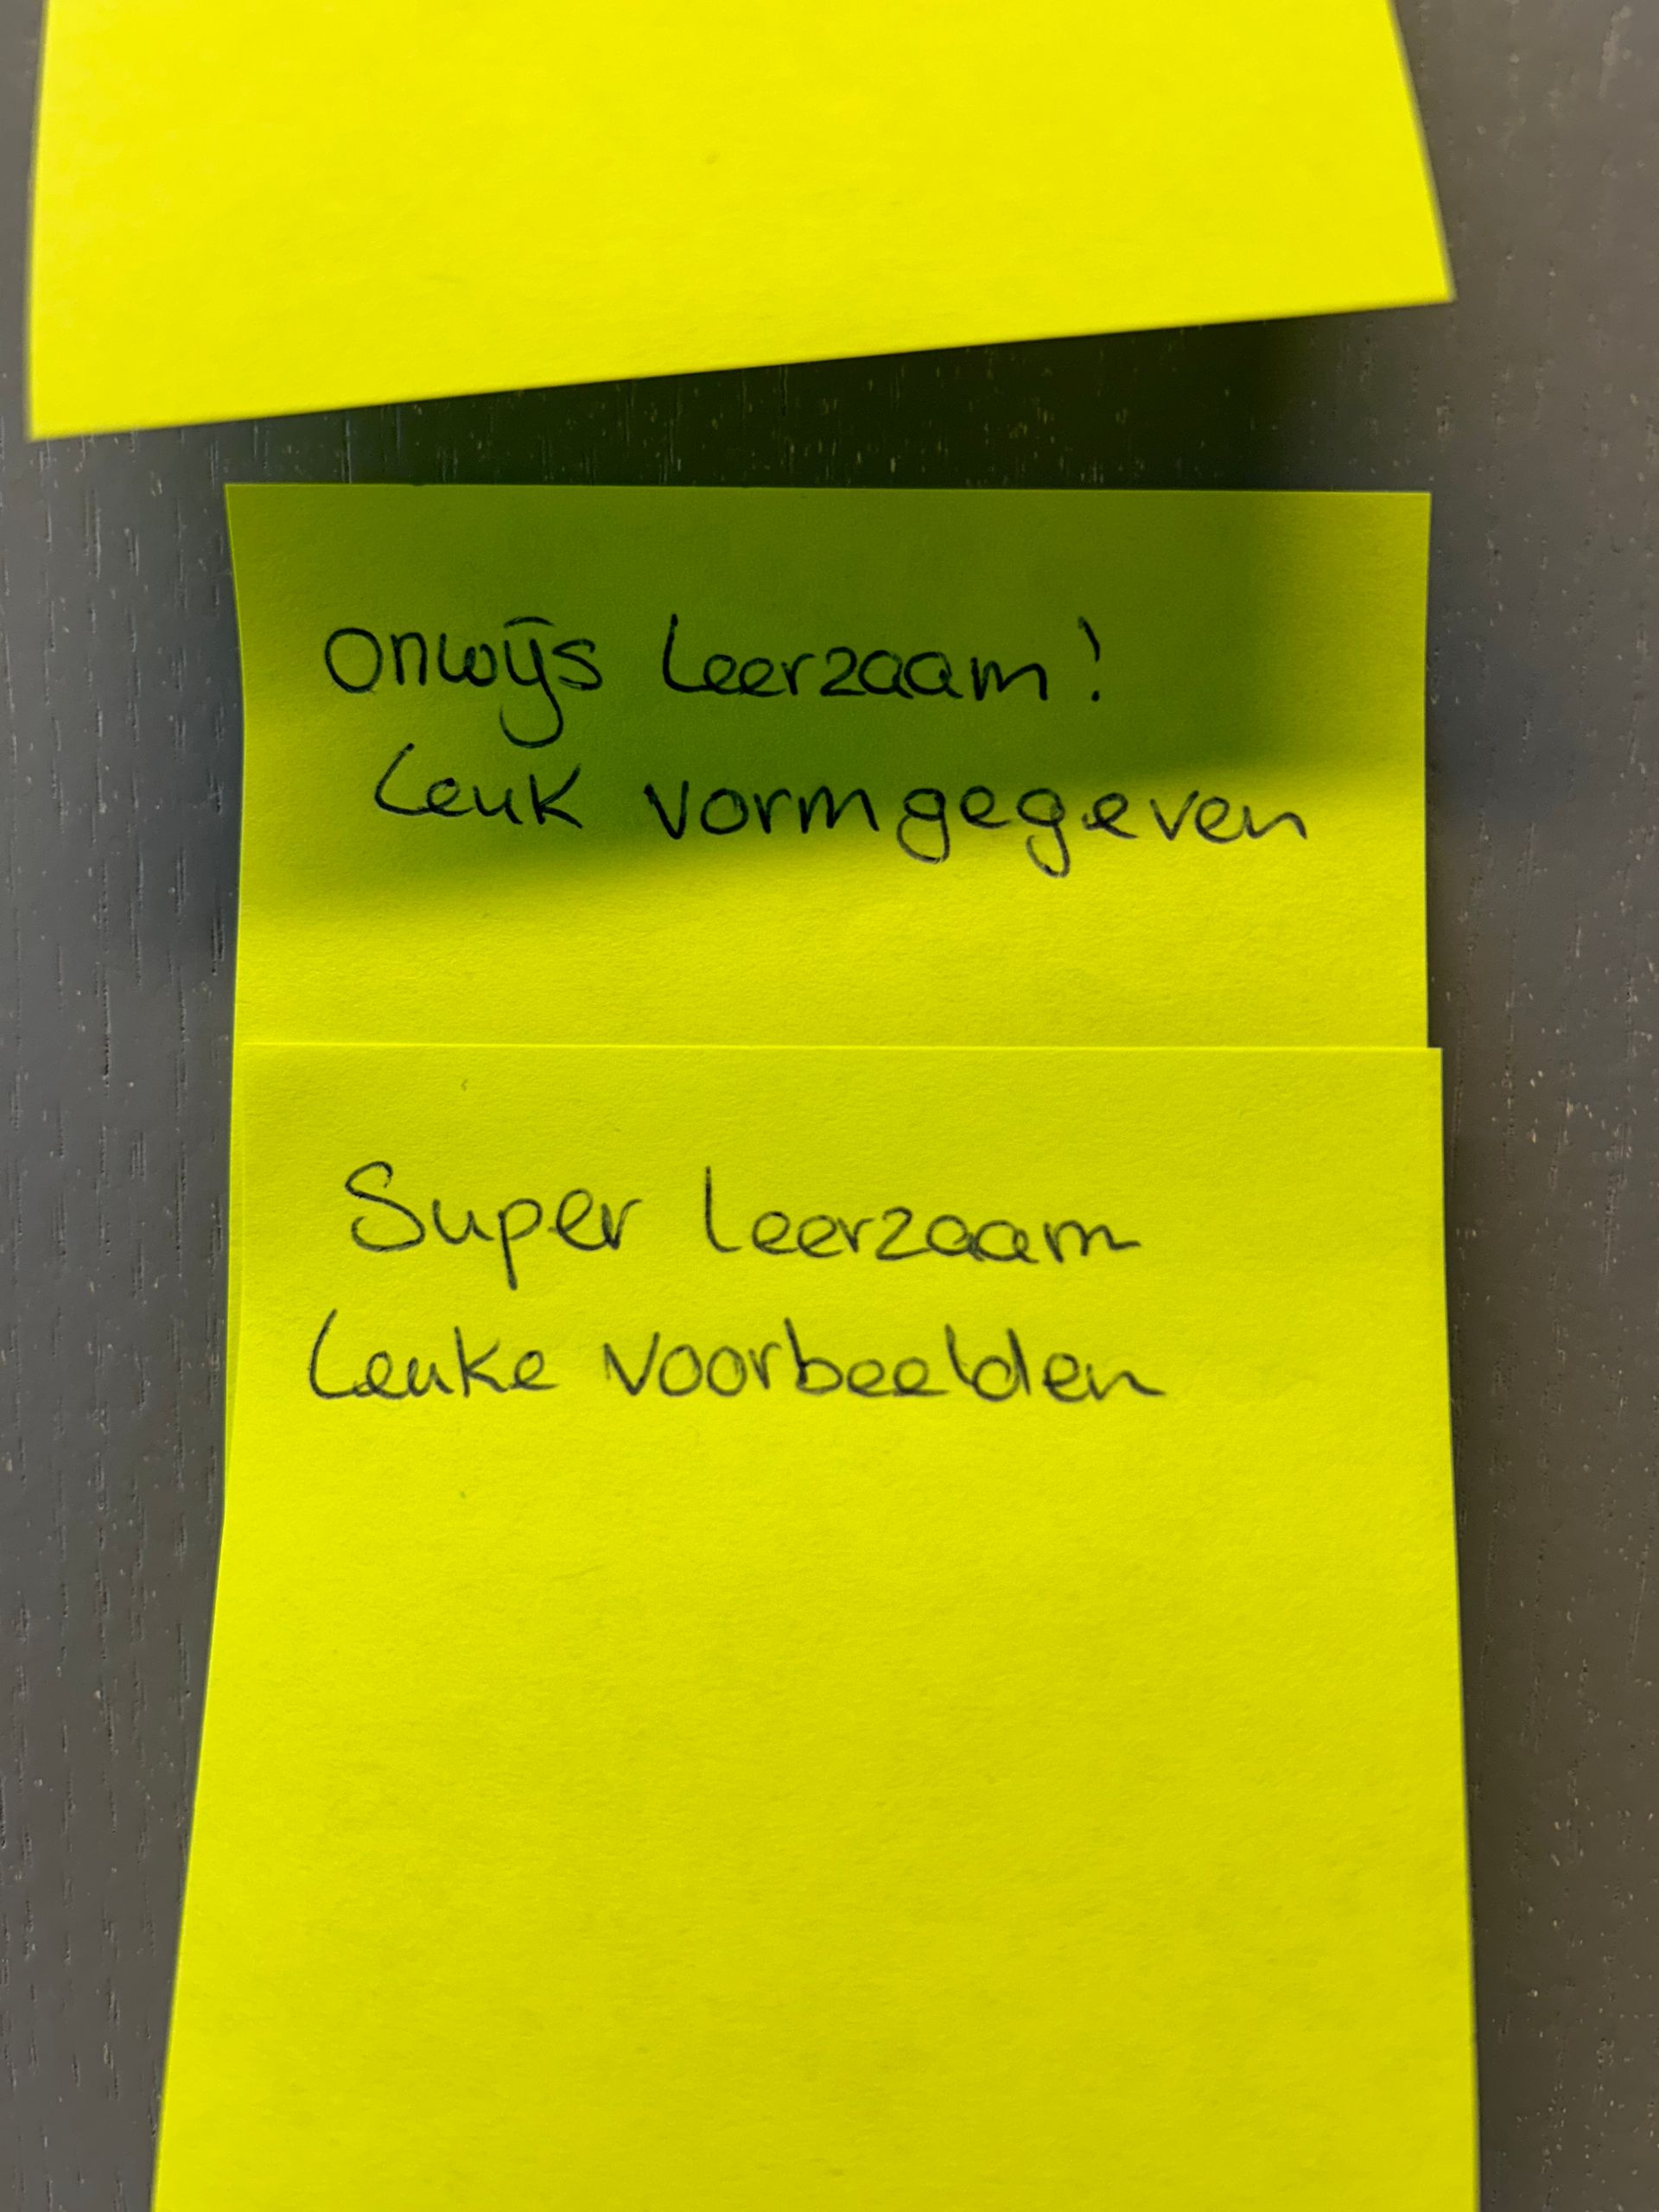 Onwijs leerzaam!
Leuk vormgegeven
Super leerzaam
Leuke voorbeelden